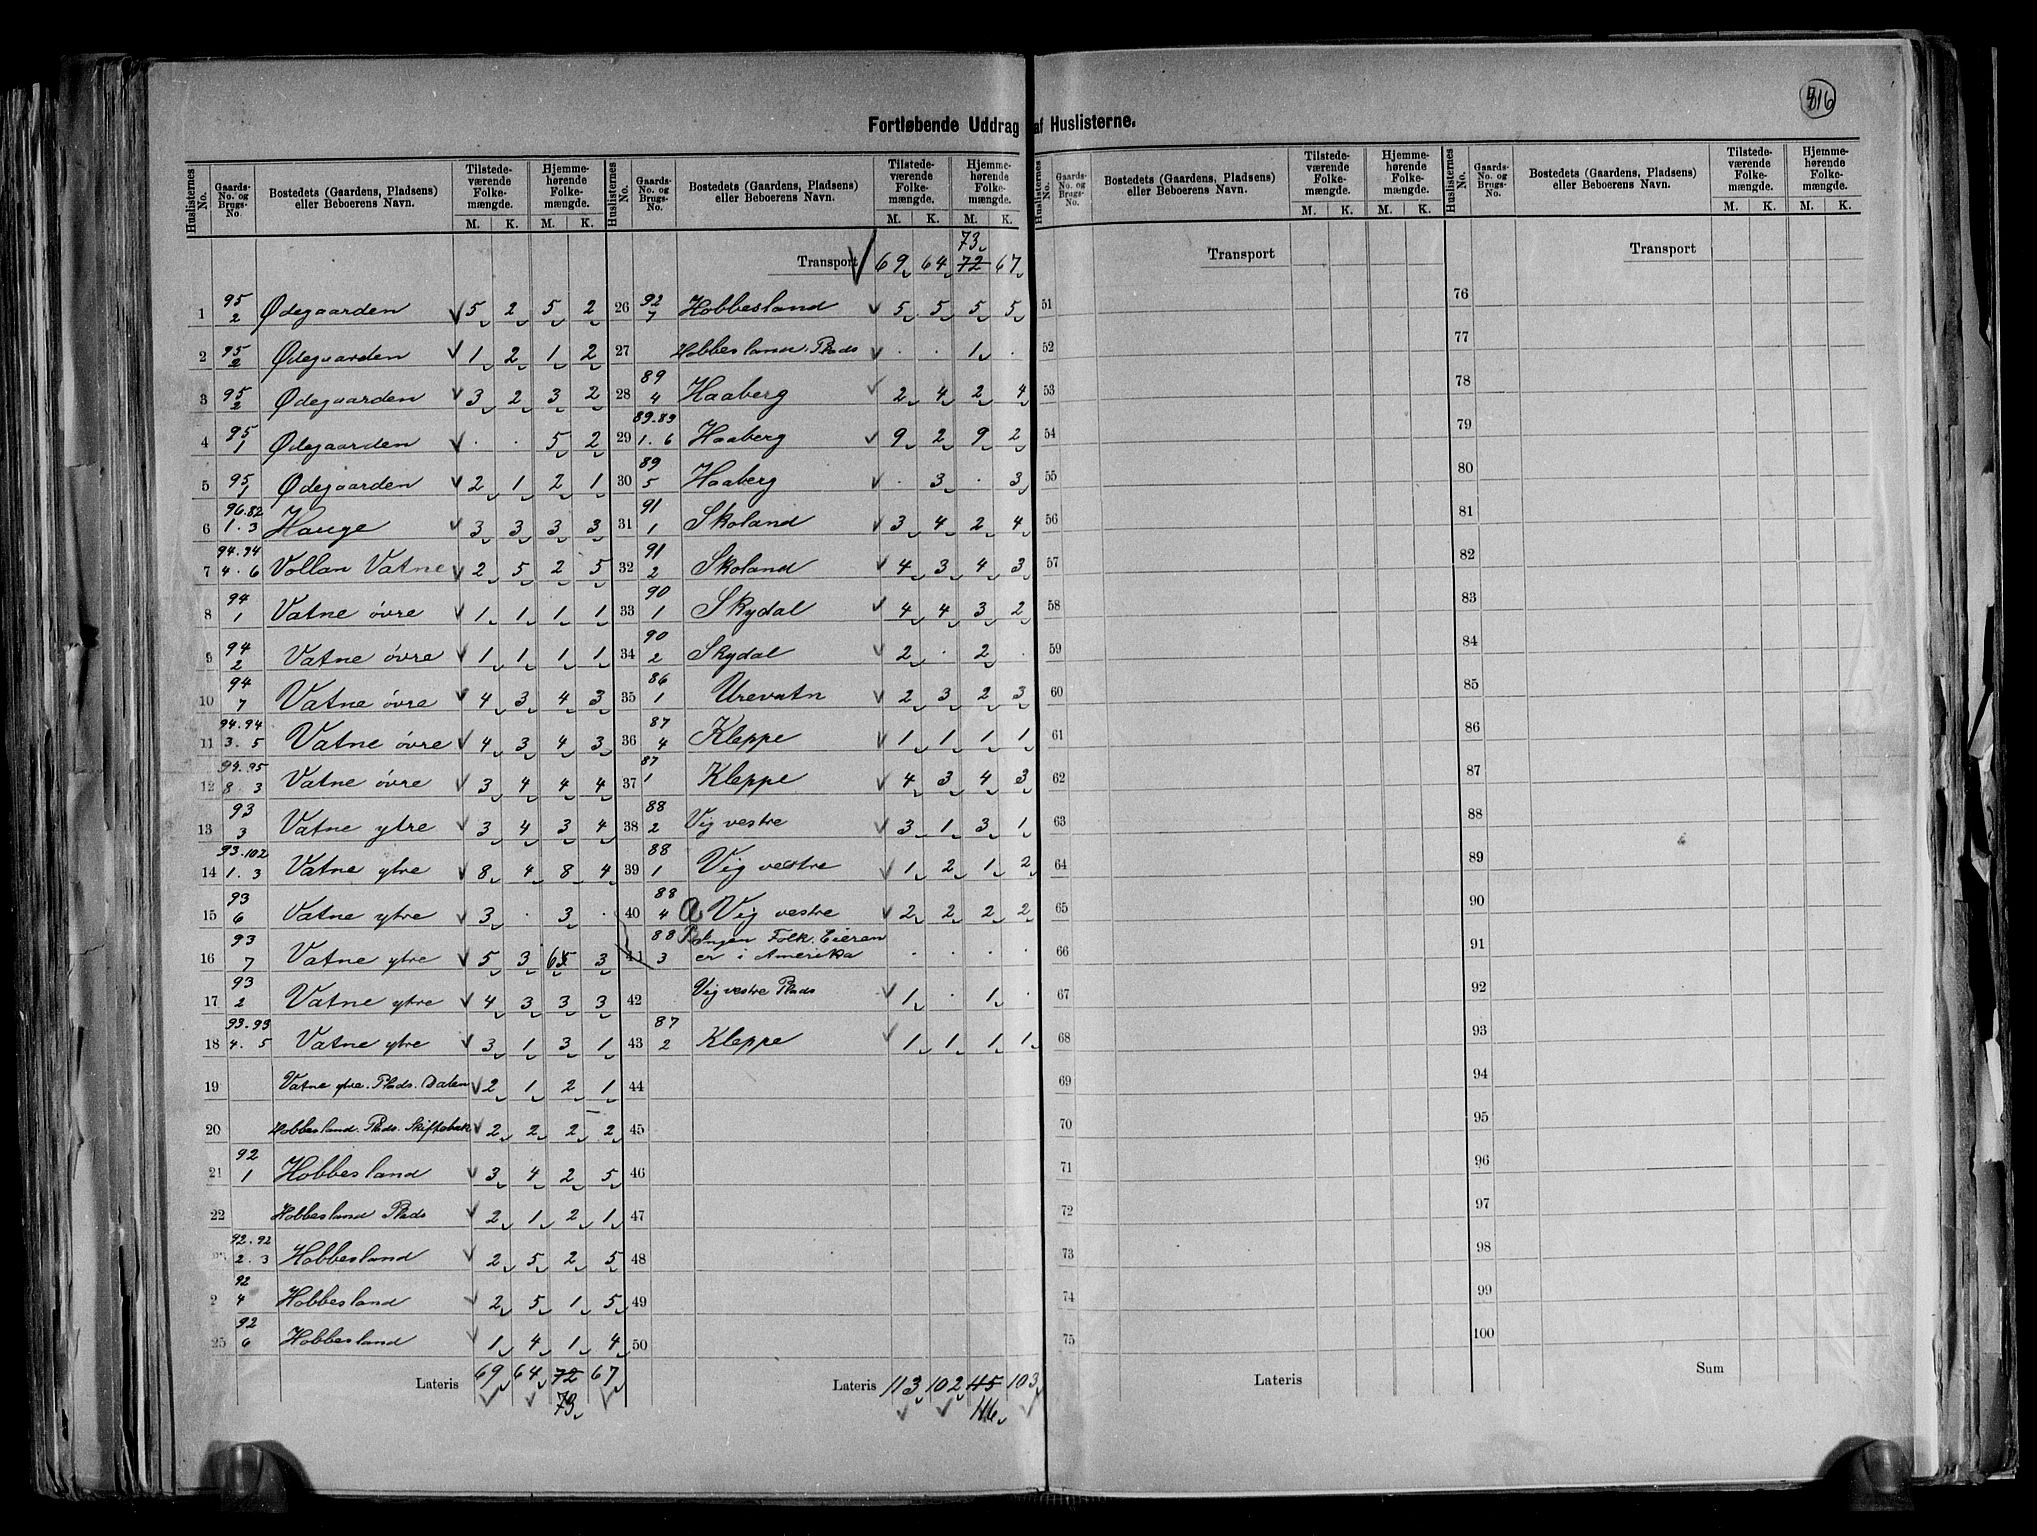 316
Fortløbende Uddrag af Huslisterne.
Huslisternes No. | Gaards-No. og Brugs-No. | Bostedets (Gaardens, Pladsens) eller Beboerens Navn. | Tilstedeværende Folkemængde. M. K. | Hjemmehørende Folkemængde. M. K.
1 95/2 Ødegaarden 5 2 5 2
2 95/2 Ødegaarden 1 2 1 2
3 95/2 Ødegaarden 3 2 3 2
4 95/1 Ødegaarden · · 5 2
5 95/1 Ødegaarden 2 1 2 1
6 96.82/1.3 Hauge 3 3 3 3
7 94.94/4.6 Vollan Vatne 2 5 2 5
8 94/1 Vatne övre 1 1 1 1
9 94/2 Vatne övre 1 1 1 1
10 94/7 Vatne övre 4 3 4 3
11 94.94/3.5 Vatne övre 4 3 4 3
12 94.95/8 3 Vatne övre 3 4 4 4
13 93/3 Vatne ytre 3 4 3 4
14 93.102/1.3 Vatne ytre 8 4 8 4
15 93/6 Vatne ytre 3 · 3 ·
16 93/7 Vatne ytre 5 3 65 3
17 93/2 Vatne ytre 4 3 3 3
18 93.93/4.5 Vatne ytre 3 1 3 1
19 Vatne ytre. Plads. Dalen 2 1 2 1
20 Hobbesland. Plads. Skiftebæk 2 2 2 2
21 92/1 Hobbesland 3 4 2 5
22 Hobbesland Plads 2 1 2 1
92.92/2.3 Hobbesland 2 5 2 5
2 92/4 Hobbesland 2 5 1 5
25 92/6 Hobbesland 1 4 1 4
Lateris 69 64 72 67
73
Huslisternes No. | Gaards-No. og Brugs-No. | Bostedets (Gaardens, Pladsens) eller Beboerens Navn. | Tilstedeværende Folkemængde. M. K. | Hjemmehørende Folkemængde. M. K.
73
Transport 69 64 72 67
26 92/7 Hobbesland 5 5 5 5
27 Hobbesland. Plads · · 1 ·
28 89/4 Haaberg 2 4 2 4
29 89.89/1.6 Haaberg 9 2 9 2
30 89/5 Haaberg · 3 · 3
31 91/1 Skoland 3 4 2 4
32 91/2 Skoland 4 3 4 3
33 90/1 Skydal 4 4 3 2
34 90/2 Skydal 2 · 2 ·
35 86/1 Urevatn 2 3 2 3
36 87/4 Kleppe 1 1 1 1
37 87/1 Kleppe 4 3 4 3
38 88/2 Vig vestre 3 1 3 1
39 88/1 Vig vestre 1 2 1 2
40 88/4 a Vig vestre 2 2 2 2
41 88/3 B Ingen Folk. Eieren
er i Amerika · · · ·
42 Vig vestre Plads 1 · 1 ·
43 87/2 Kleppe 1 1 1 1
44
45
46
47
48
49
50
Lateris 113 102 115 103
116
Huslisternes No. | Gaards-No. og Brugs-No. | Bostedets (Gaardens, Pladsens) eller Beboerens Navn. | Tilstedeværende Folkemængde. M. K. | Hjemmehørende Folkemængde. M. K.
Transport
51
52
53
54
55
56
57
58
59
60
61
62
63
64
65
66
67
68
69
70
71
72
73
74
75
Lateris
Huslisternes No. | Gaards-No. og Brugs-No. | Bostedets (Gaardens, Pladsens) eller Beboerens Navn. | Tilstedeværende Folkemængde. M. K. | Hjemmehørende Folkemængde. M. K.
Transport
76
77
78
79
80
81
82
83
84
85
86
87
88
89
90
91
92
93
94
95
96
97
98
99
100
Sum